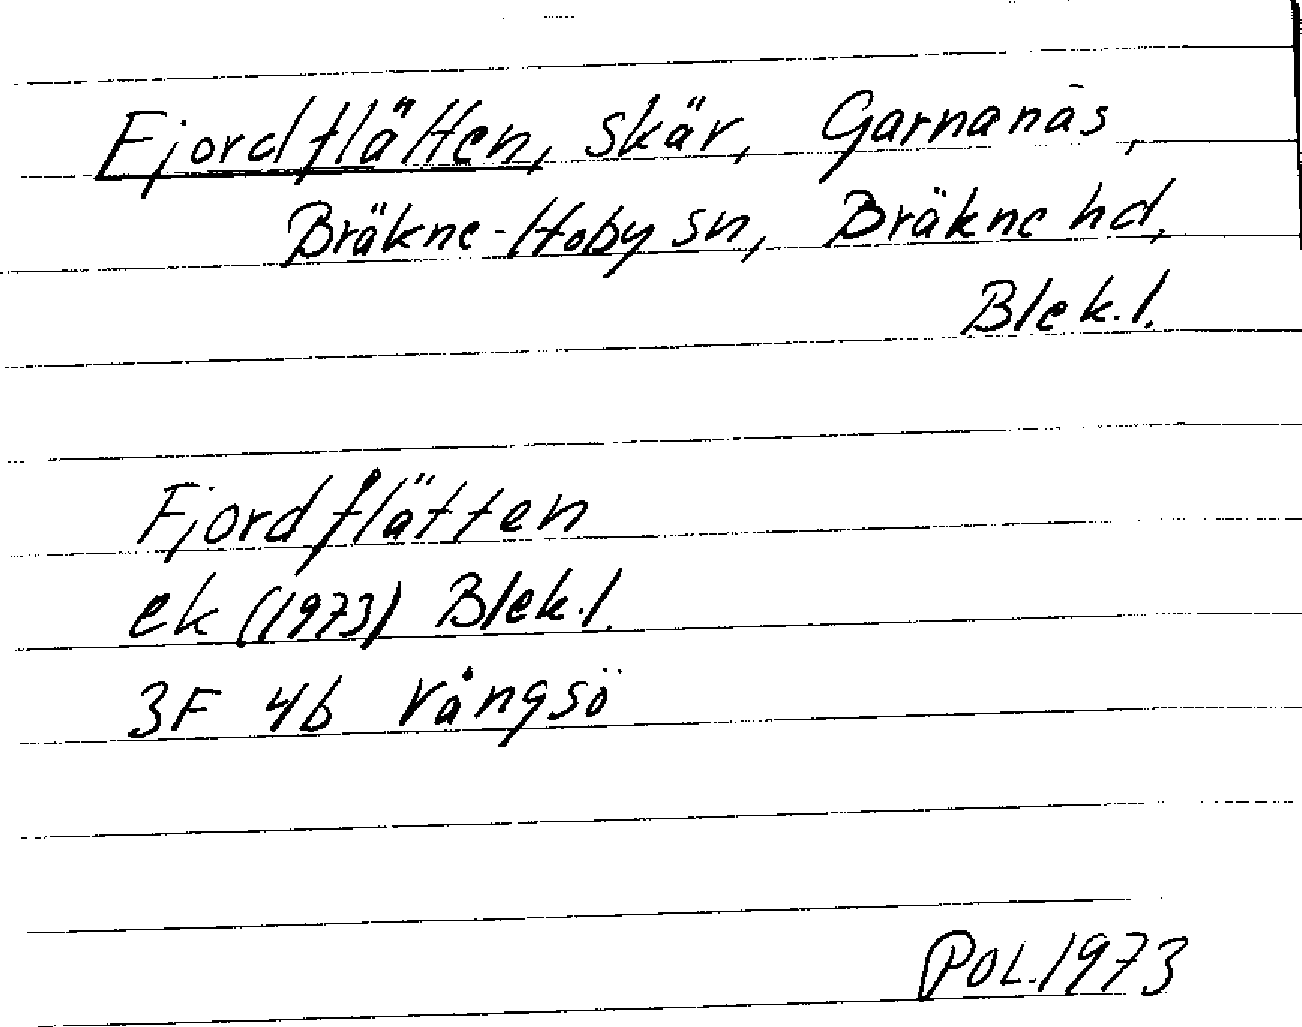 Fjordflätten, skär, Garnanäs,
Bräkne-Hoby sn, Bräkne hd,
Blek. l.
Fjordflätten
ek (1973) Blek. l.
3F 4b Vångsö
POL 1973